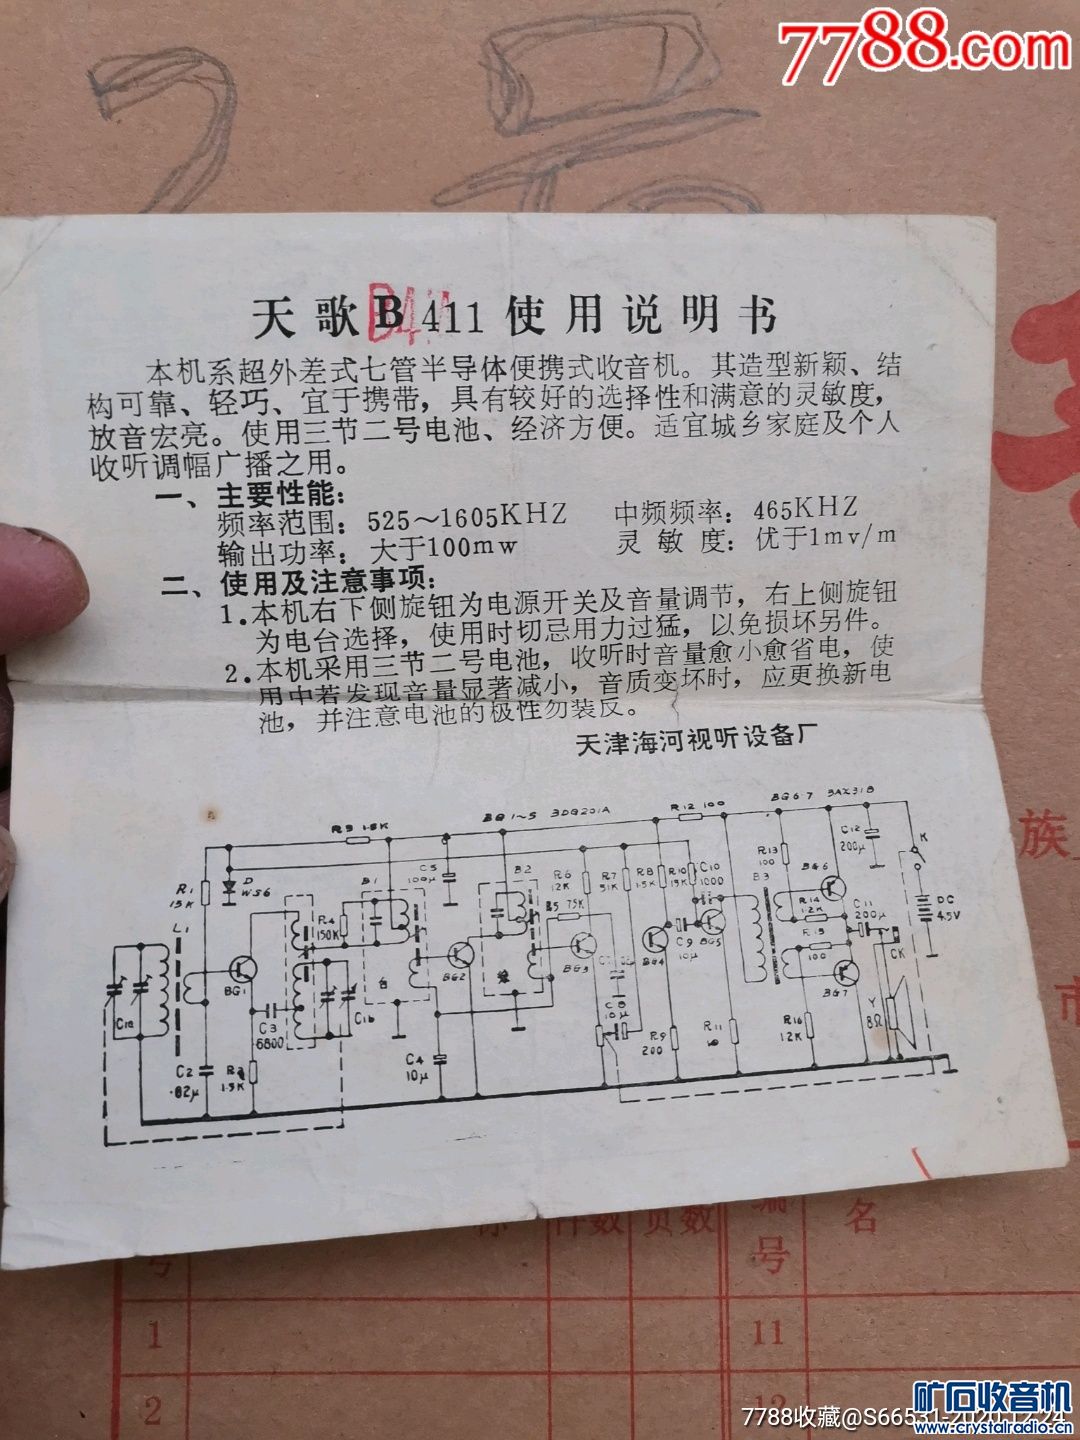 7788.com
天歌B411使用说明书
本机系超外差式七管半导体便携式收音机。其造型新颖、结
构可靠、轻巧、宜于携带，具有较好的选择性和满意的灵敏度，
放音宏亮。使用三节二号电池、经济方便。适宜城乡家庭及个人
收听调幅广播之用。
一、主要性能：
频率范围：525～1605KHZ 中频频率：465KHZ
输出功率：大于100mw 灵敏度：优于1mv/m
二、使用及注意事项：
1.本机右下侧旋钮为电源开关及音量调节，右上侧旋钮
为电台选择，使用时切忌用力过猛，以免损坏另件。
2.本机采用三节二号电池，收听时音量愈小愈省电，使
用中若发现音量显著减小，音质变坏时，应更换新电
池，并注意电池的极性勿装反。
天津海河视听设备厂
BG1~5 3DG201A
R12 100
BG6·7 3AX31B
R3 1.8K
C12 200μ
K
D WS6
R1 15K
L1
C5 100μ
B1
B2
R6 12K
R7 51K
R8 1.5K
R10 15K
C10 1000
R13 100
B3
BG6
R4 150K
R5 75K
R14 1.2K
C11 200μ
DC 4.5V
BG1
BG2
BG3
BG4
C9 10μ
BG5
R15 100
CK
BG7
C1a
C3 6800
C1b
白
绿
C8 10μ
Y 8Ω
C2 .02μ
R2 1.5K
C4 10μ
R9 200
R11
R16 12K
族
市
号
件数
页数
编号
名
1
11
2
12
矿石收音机
www.crystalradio.cn
7788收藏@S66531-2020.12.24